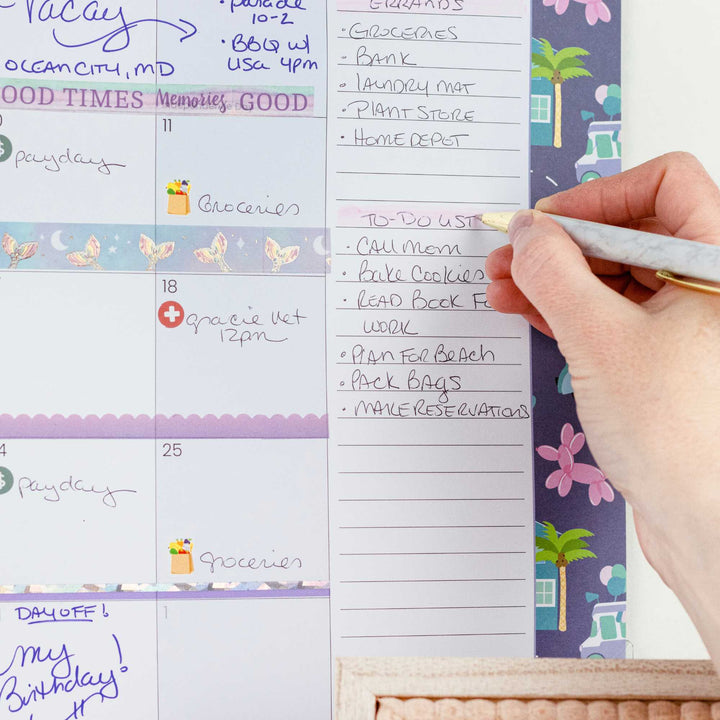 Vacay
OCEAN CITY, MD
• parade
10-2
• BBQ w/
Lisa 4pm
OOD TIMES Memories GOOD
payday
11
Groceries
18
gracie vet
12pm
4
payday
25
groceries
DAY OFF!
1
my
Birthday!
ERRANDS
• GROCERIES
• BANK
• LAUNDRY MAT
• PLANT STORE
• HOME DEPOT
TO-DO LIST
• CALL MOM
• BAKE COOKIES
• READ BOOK FO
WORK
• PLAN FOR BEACH
• PACK BAGS
• MAKE RESERVATIONS